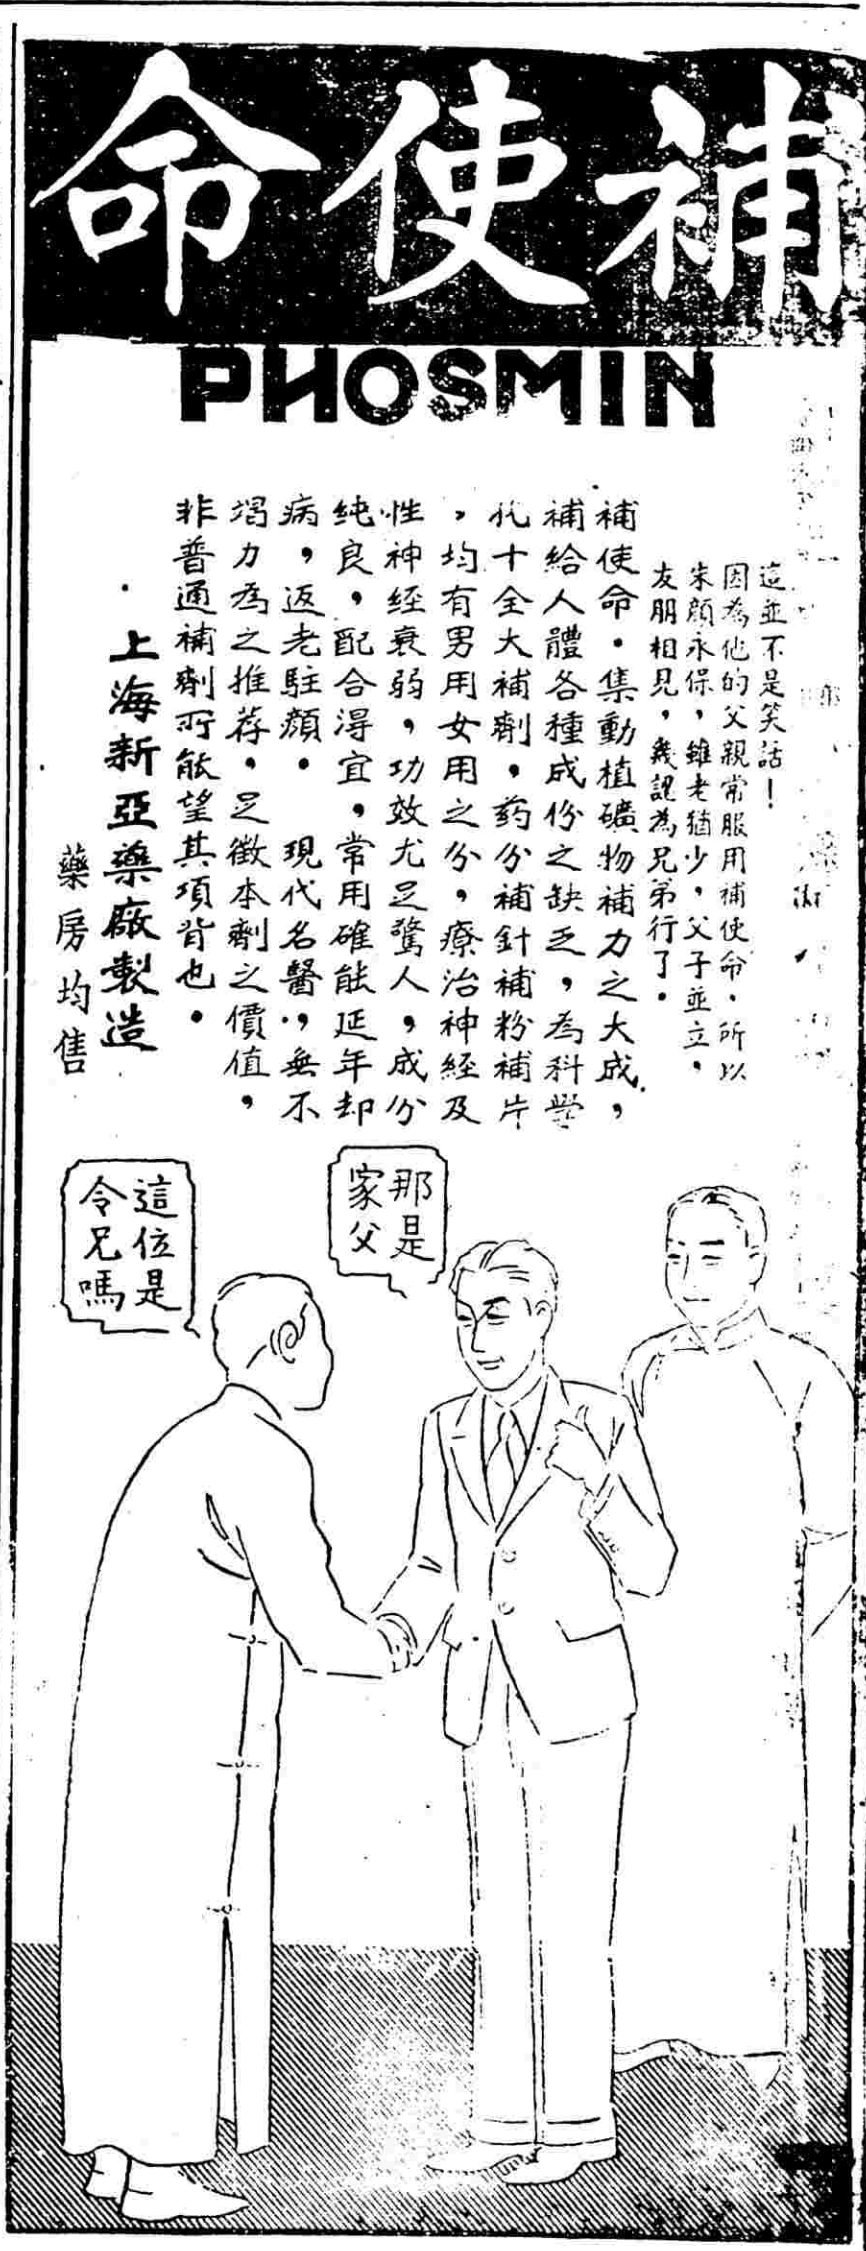 補使命
PHOSMIN
這並不是笑話！
因為他的父親常服用補使命．所以
朱顏永保，雖老猶少，父子並立，
友朋相見，幾認為兄弟行了．
補使命．集動植礦物補力之大成，
補給人體各種成份之缺乏，為科學
化十全大補劑，药分補針補粉補片
，均有男用女用之分，療治神經及
性神經衰弱，功效尤足驚人，成分
純良，配合得宜，常用確能延年却
病，返老駐顏．　現代名醫，無不
竭力為之推荐，足徵本劑之價值，
非普通補劑所能望其項背也．
上海新亞藥廠製造
藥房均售
那是
家父
這位是
令兄嗎